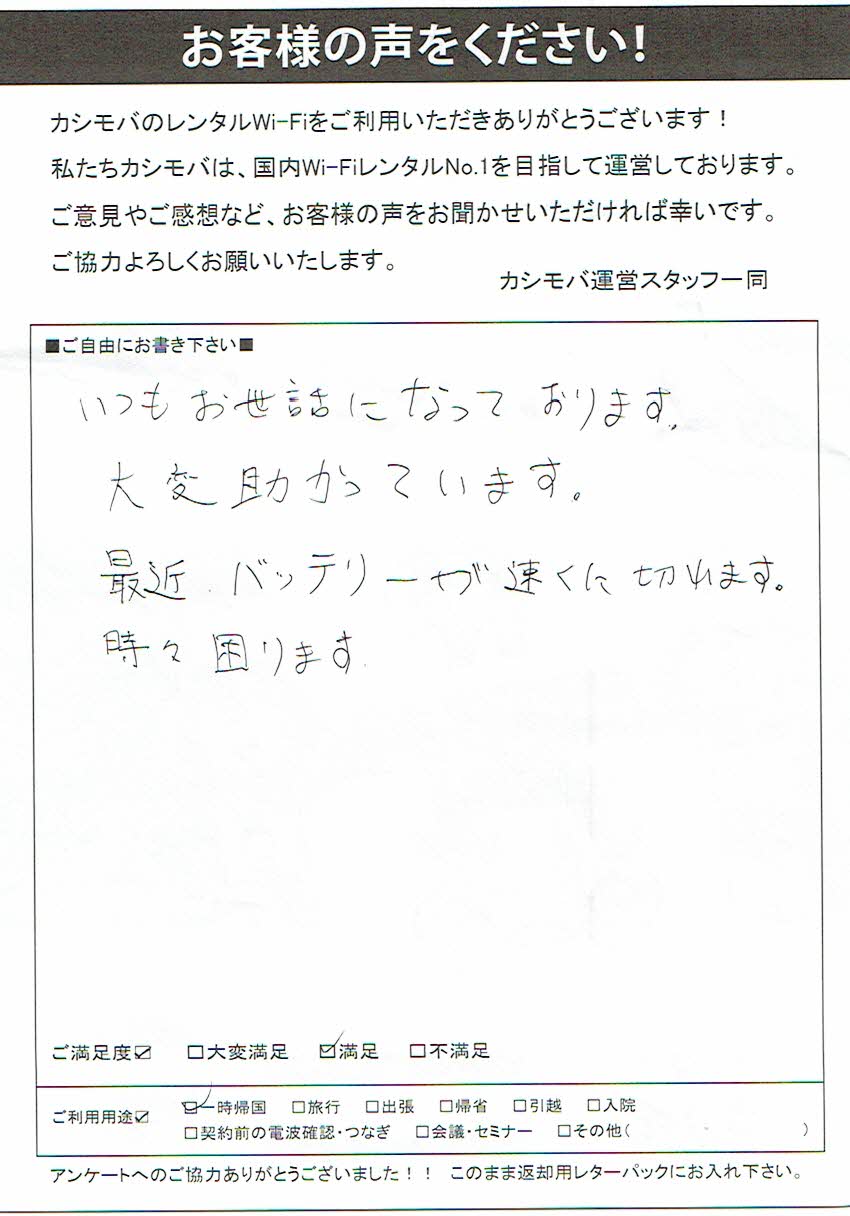 お客様の声をください!
カシモバのレンタルWi-Fiをご利用いただきありがとうございます!
私たちカシモバは、国内Wi-FiレンタルNo.1を目指して運営しております。
ご意見やご感想など、お客様の声をお聞かせいただければ幸いです。
ご協力よろしくお願いいたします。
カシモバ運営スタッフ一同
■ご自由にお書き下さい■
いつもお世話になっております。
大変助かっています。
最近バッテリーがが速くに切れます。
時々困ります
ご満足度☑ □大変満足 ☑満足 □不満足
ご利用用途☑ ☑一時帰国 □旅行 □出張 □帰省 □引越 □入院
□契約前の電波確認・つなぎ □会議・セミナー □その他( )
アンケートへのご協力ありがとうございました!! このまま返却用レターパックにお入れ下さい。